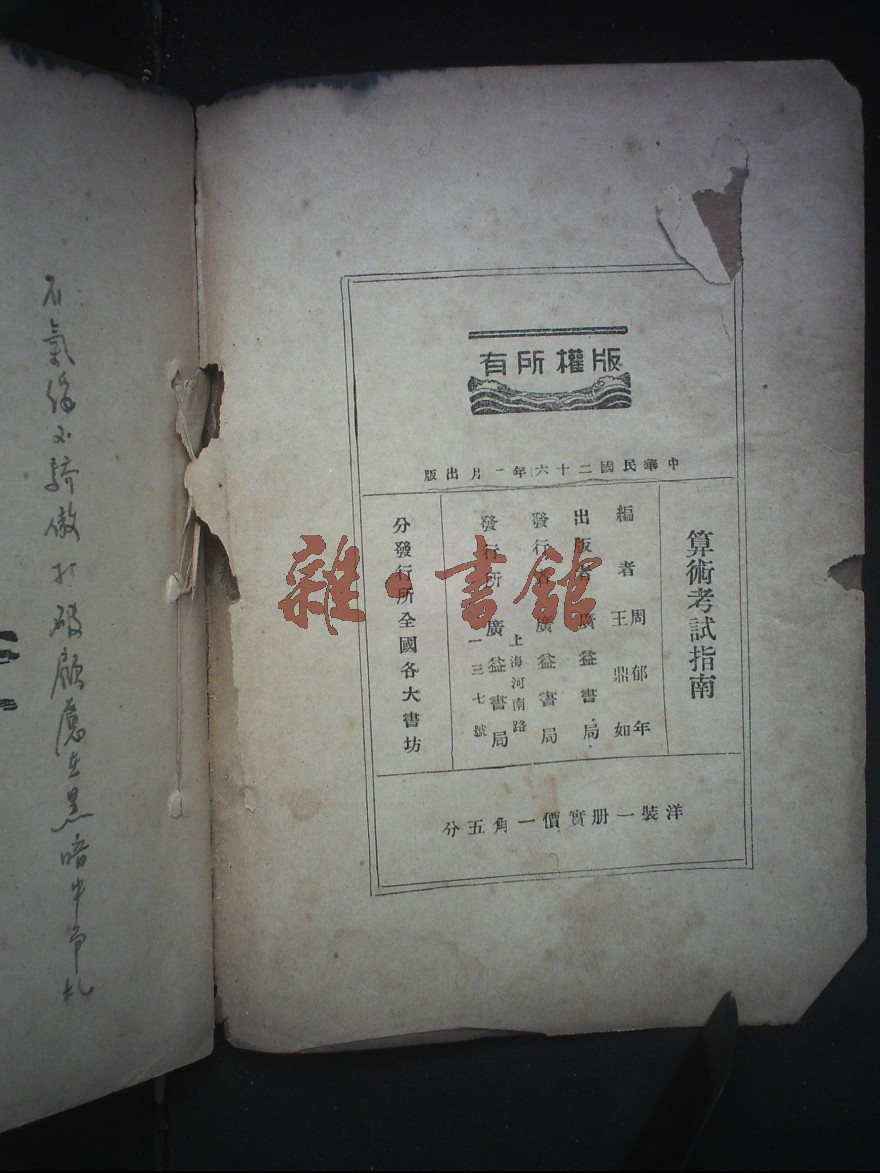 版權所有
中華民國二十六年一月出版
算術考試指南
編者 周郁年
王鼎如
出版者 廣益書局
發行者 廣益書局
發行所 廣益書局
上海河南路
一三七號
分發行所全國各大書坊
洋裝一册實價一角五分
雜·書館
不氣餒不驕傲打破顧慮在黑暗中争扎